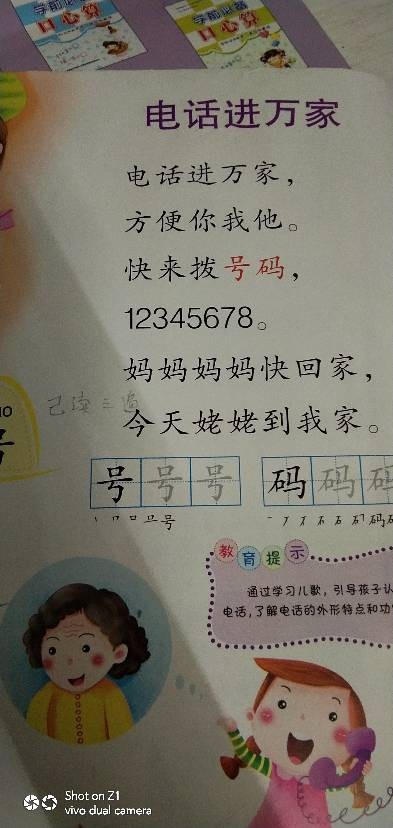 学前必备
口心算
学前必备
口心算
电话进万家
电话进万家，
方便你我他。
快来拨号码，
12345678。
妈妈妈妈快回家，
已读三遍
今天姥姥到我家。
号 号 号 码 码 码
教育提示
通过学习儿歌，引导孩子认
电话，了解电话的外形特点和功
Shot on Z1
vivo dual camera